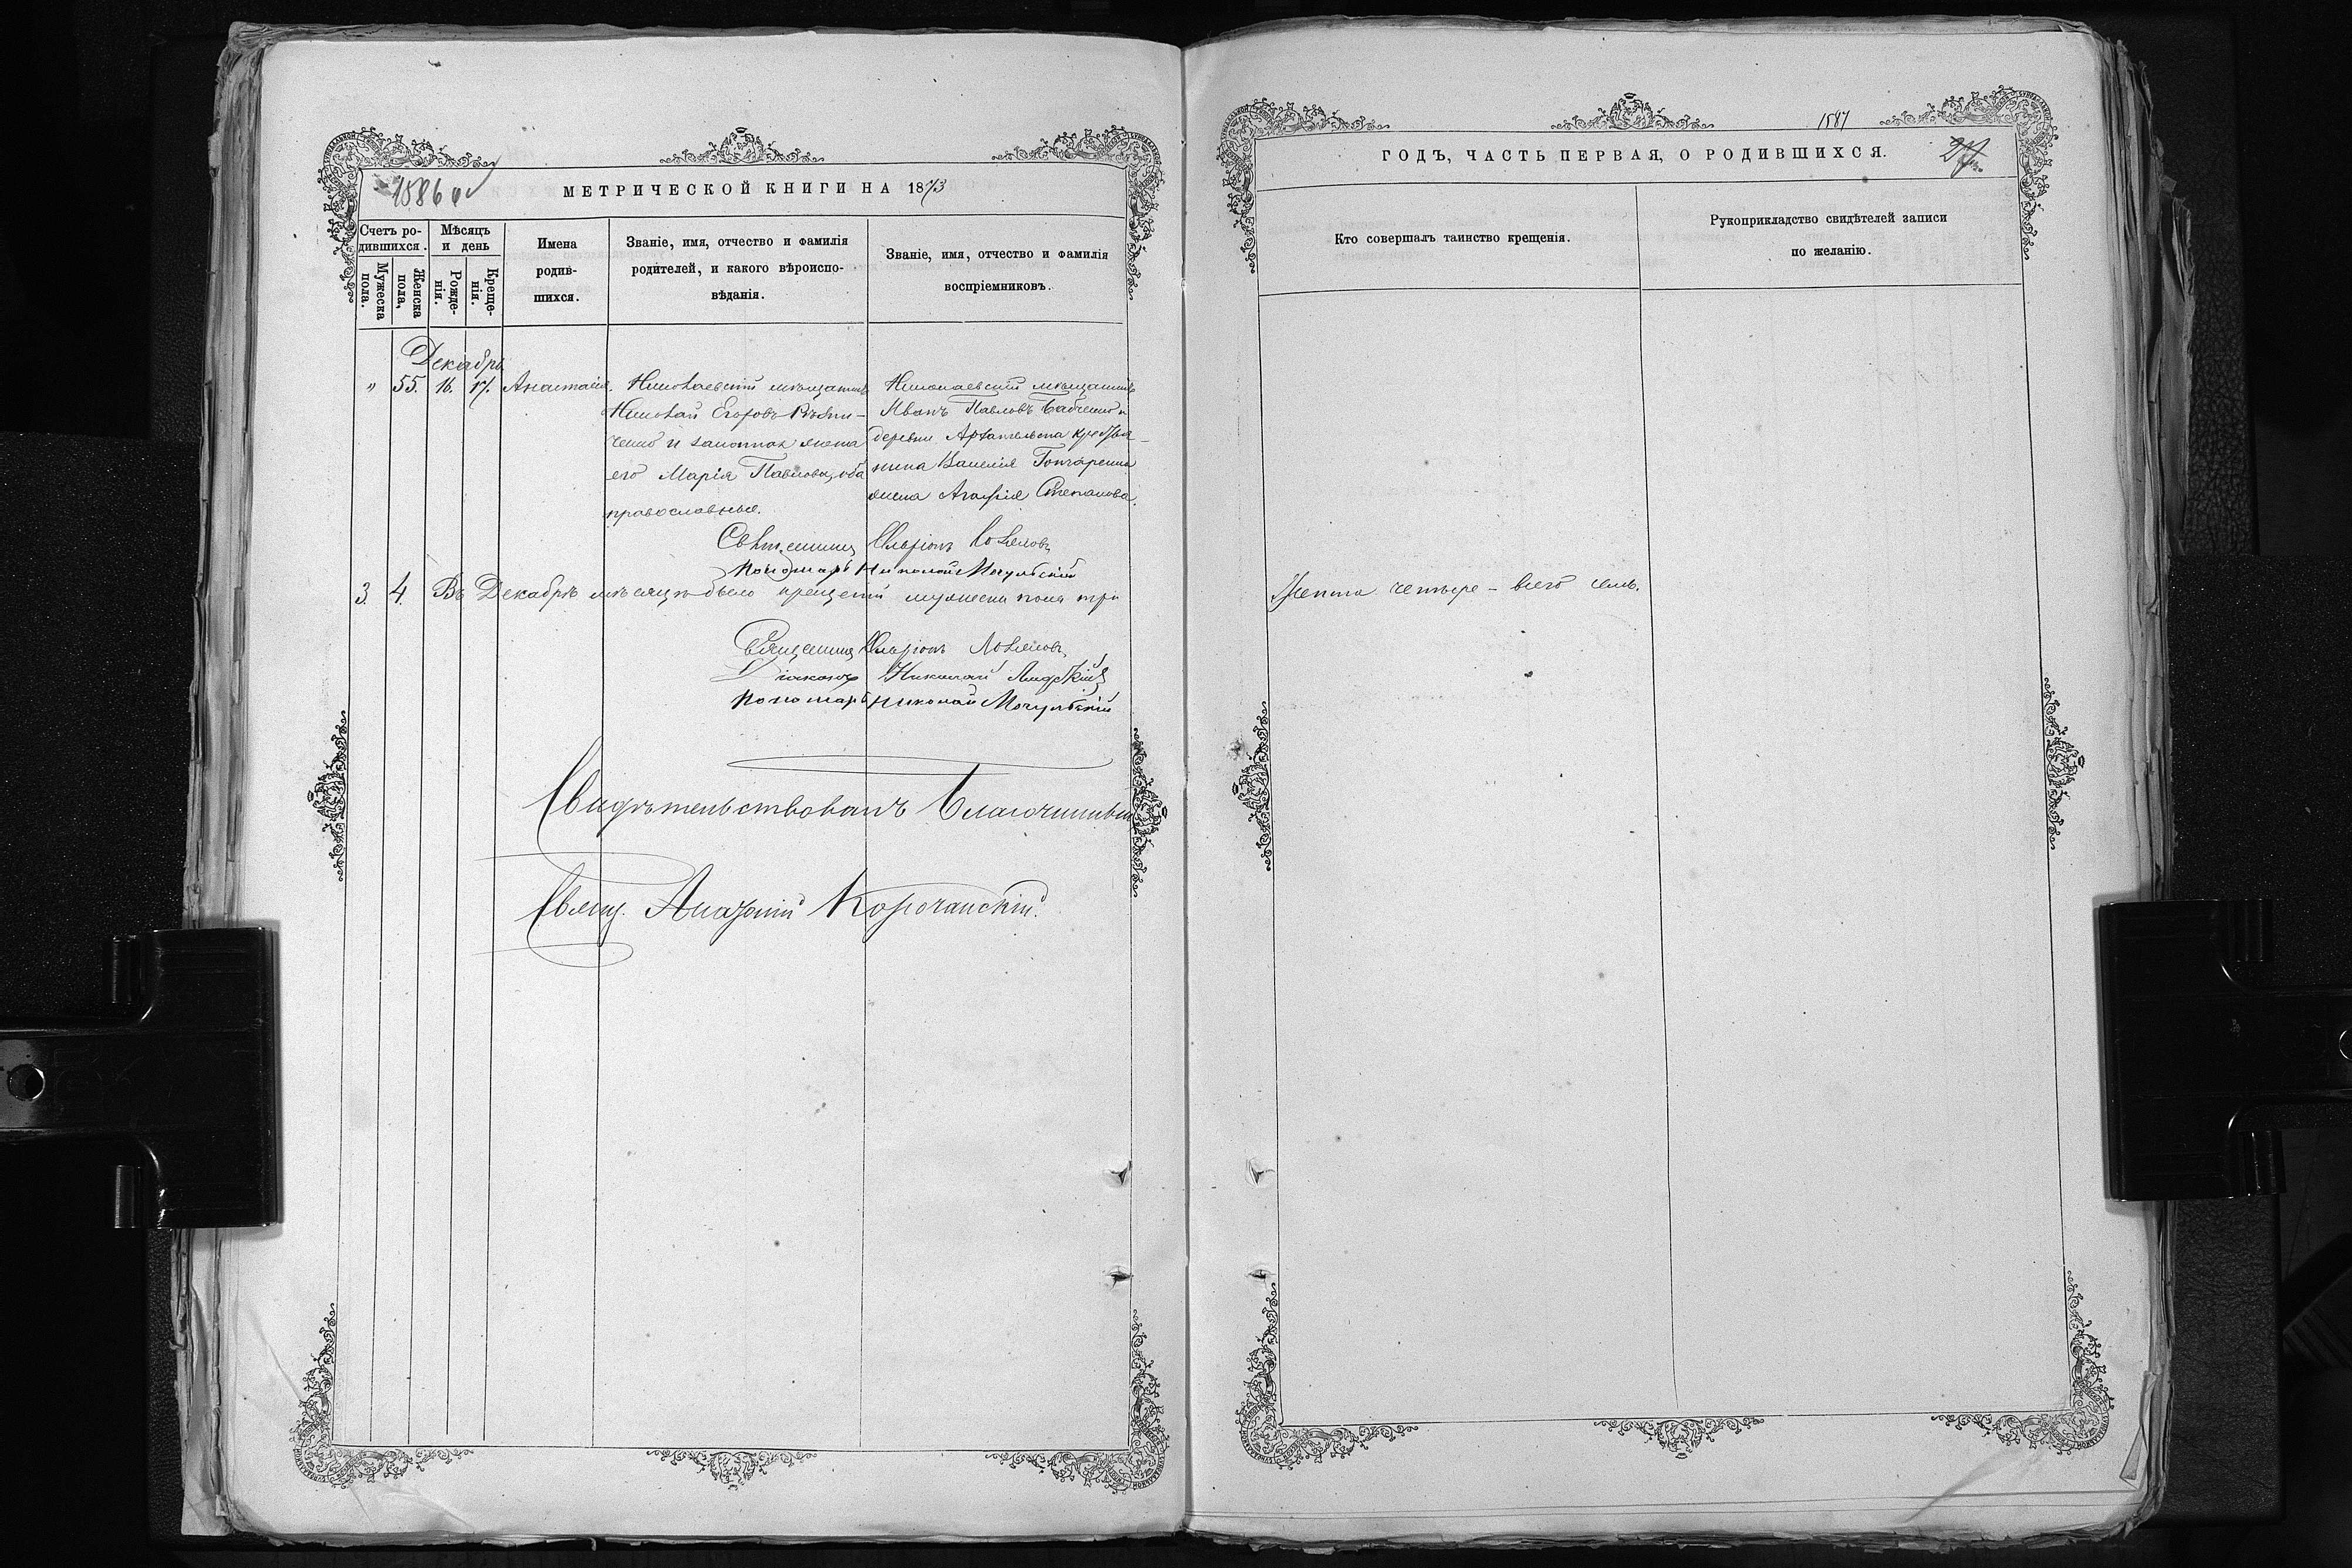 1586 об
МЕТРИЧЕСКОЙ КНИГИ НА 1873
Счетъ ро-
дившихся.
Мужеска
пола.
Женска
пола,
Мѣсяцъ
и день
Рожде-
нія.
Креще-
нія.
Имена
родив-
шихся.
Званіе, имя, отчество и фамилія
родителей, и какого вѣроиспо-
вѣданія.
Званіе, имя, отчество и фамилія
воспріемниковъ.
Декабрь
" 55. 16. 17. Анастасія.
Николаевскій мѣщанинъ
Николай Егоровъ
и законная жена
его Марія Павлова, оба
православные.
Николаевскій мѣщанинъ
Иванъ Павловъ Бабченко и
деревни крестья-
нина Василія Гончаренка
жена Агафія Степанова.
Священникъ Иларіонъ
Пономарь Николай Мочульскій
3. 4. Въ Декабрѣ мѣсяцѣ было крещено мужеска пола три
Священникъ Иларіонъ
Діаконъ Николай
Пономарь Николай Мочульскій
Свидѣтельствовалъ Благочинный
Свящ. Корочанскій.
1587
ГОДЪ, ЧАСТЬ ПЕРВАЯ, О РОДИВШИХСЯ.
Кто совершалъ таинство крещенія.
Рукоприкладство свидѣтелей записи
по желанію.
женска четыре – всего семь.